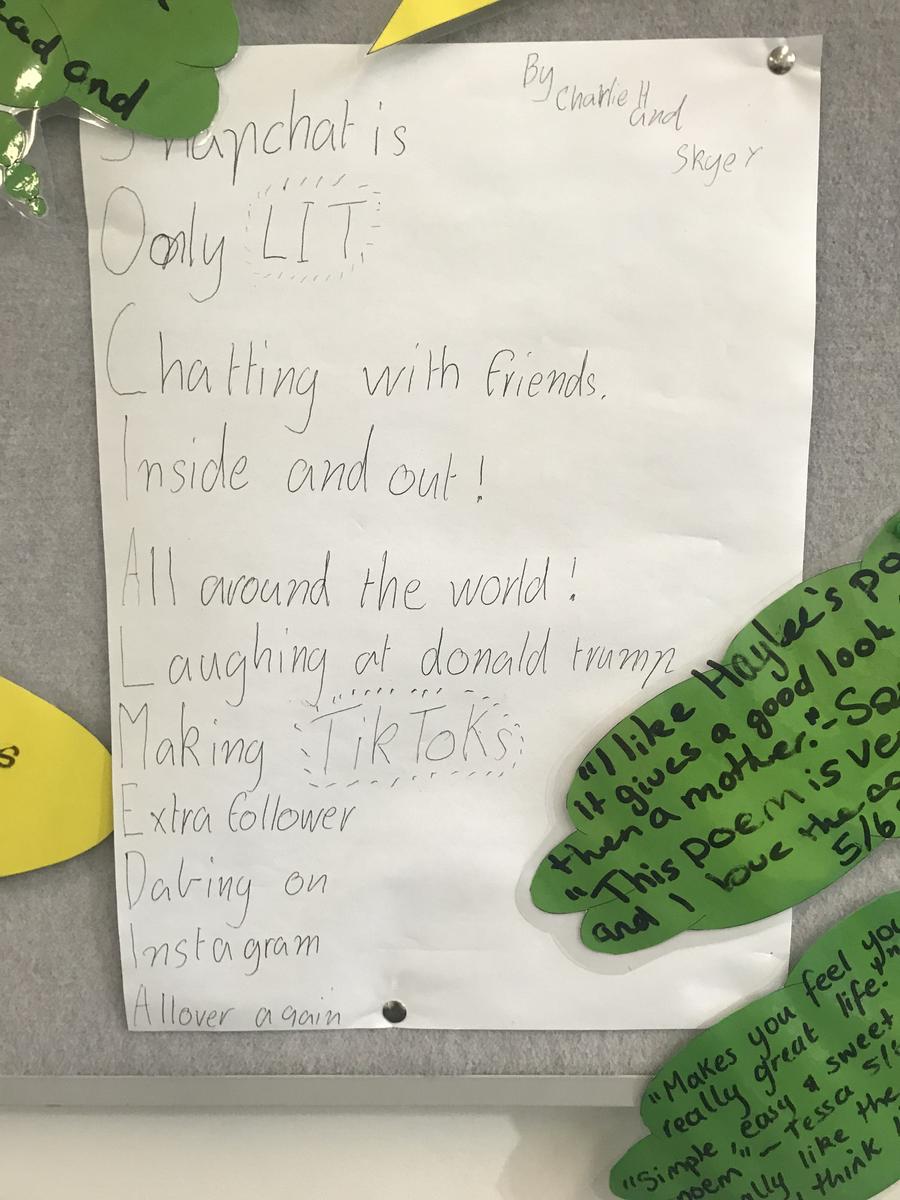 ead and
By
Charlie H
and
Skye Y
Snapchat is
Oonly LIT
Chatting with friends.
Inside and out!
All around the world!
Laughing at donald trump
Making TikToks
Extra follower
Dabing on
Instagram
Allover again
s
"I like Haylee's po
it gives a good look
then a mother."-
"This poem is ve
and I love the co
5/6
"Makes you feel you
really great life."
"Simple, easy & sweet
poem" - Tessa 5/
lly like the
think